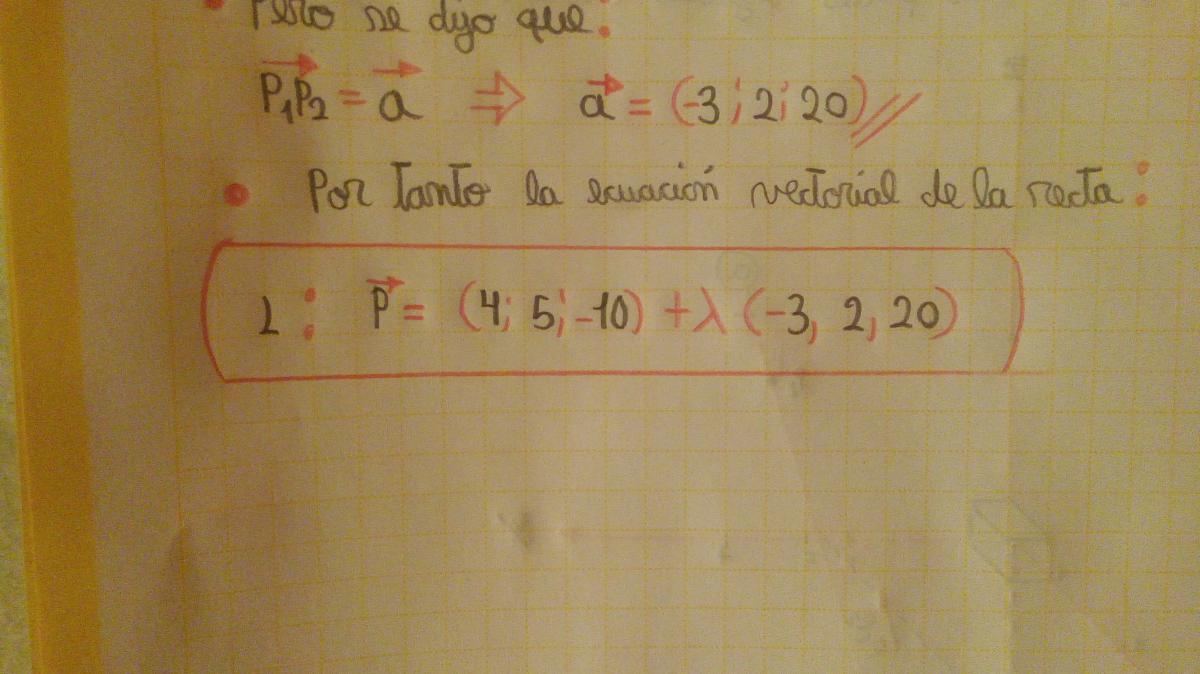 Pero se dijo que:
P₁P₂ = a ⇒ a = (-3; 2; 20)//
• Por tanto la ecuación vectorial de la recta:
L: P = (4; 5; -10) + λ (-3, 2, 20)